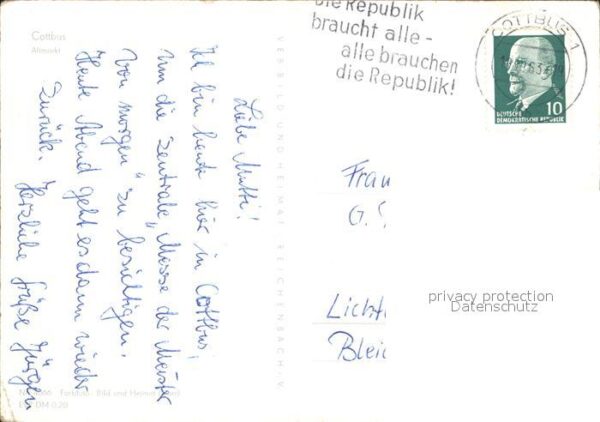 Cottbus
Altmarkt
Liebe Mutti!
Ich bin heute hier in Cottbus,
um die zentrale „Messe der Meister
von morgen" zu besichtigen.
Heute Abend geht es dann wieder
zurück. Herzliche Grüße Jürgen
VERBILDUNDHEIMAT REICHENBACH
Die Republik
braucht alle -
alle brauchen
die Republik!
COTTBUS 1
10
DEUTSCHE
DEMOKRATISCHE REPUBLIK
Frau
G.
Licht
Blei
privacy protection
Datenschutz
Bild und Heimat
EVP DM 0,20